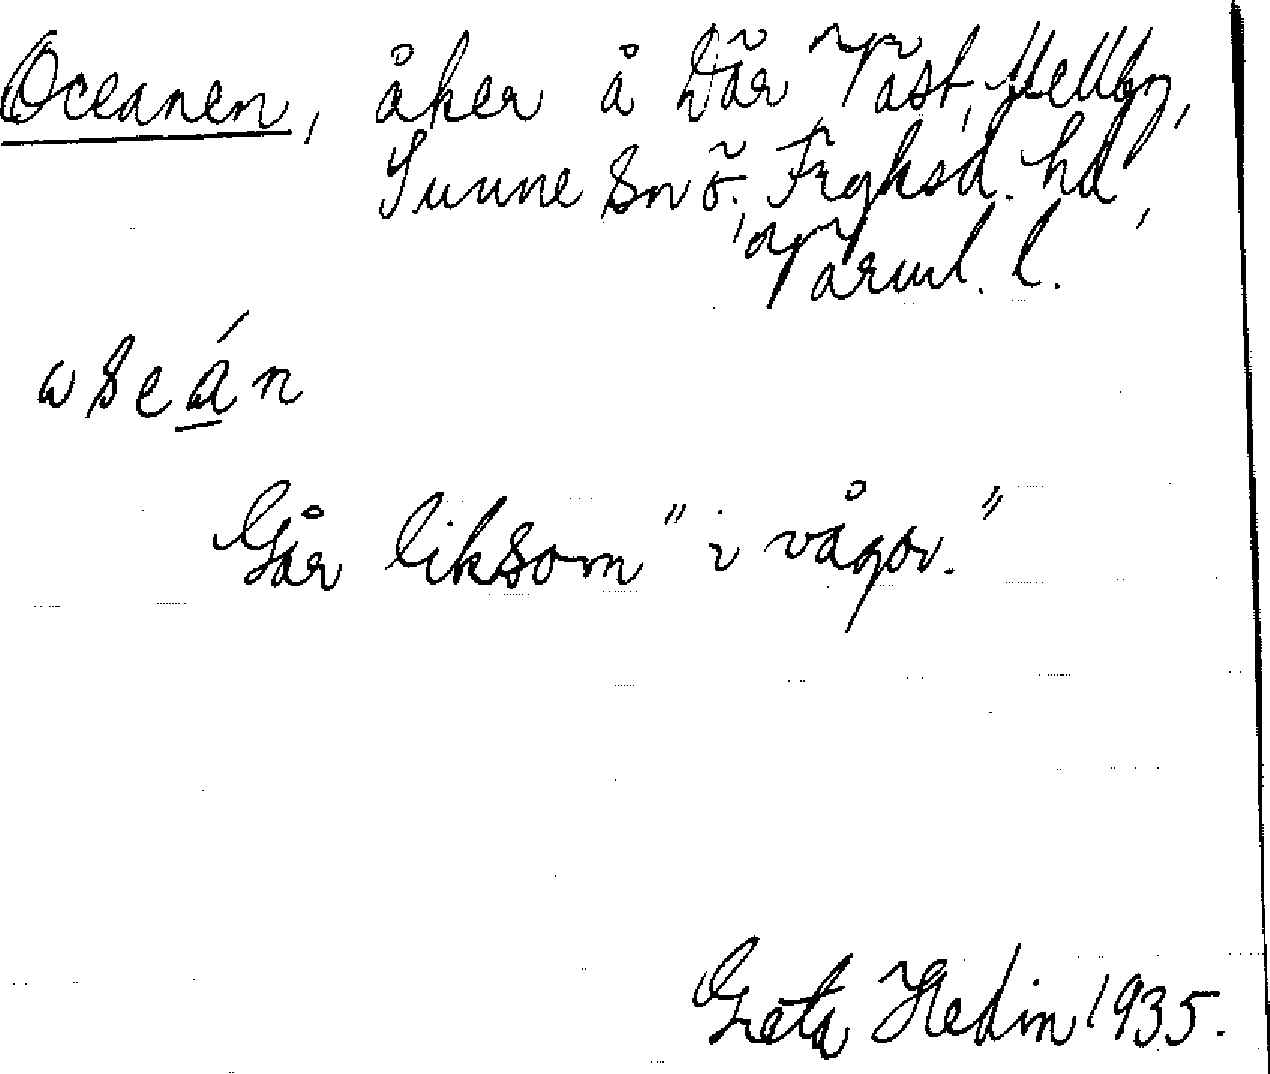 Oceanen, åker å Där Väst, Mellby,
Sunne sn ö. Fryksd. hd,
Värml. l.
ωseán
Går liksom "i vågor."
Greta Hedin 1935.